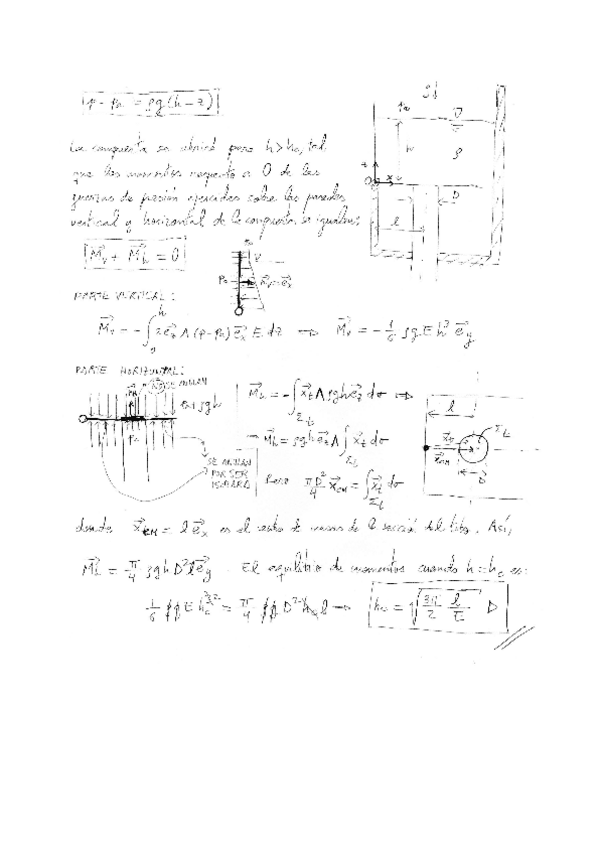 p - pa = ρg(h-z)
La compuerta se abrirá para h > hc, tal
que los momentos respecto a O de las
fuerzas de presión ejercidas sobre las paredes
vertical y horizontal de la compuerta se igualan:
M⃗v + M⃗h = 0
PARTE VERTICAL:
M⃗v = - ∫₀ʰ z e⃗z ∧ (p-pa) e⃗x E dz → M⃗v = - 1/6 ρg E h³ e⃗y
PARTE HORIZONTAL:
SE ANULAN
pa + ρgh
pa
SE ANULAN
POR SER
M⃗h = - ∫Σt x⃗t ∧ ρgh e⃗z dσ ⇒
→ M⃗h = ρgh e⃗z ∧ ∫Σt x⃗t dσ
Pero πD²/4 x⃗CM = ∫Σt x⃗t dσ
l
Σt
x⃗t
x⃗CM
D
donde x⃗CM = l e⃗x es el centro de masas de la sección del tubo. Así,
M⃗h = π/4 ρgh D² l e⃗y. El equilibrio de momentos cuando h = hc es:
1/6 ρg E hc³ = π/4 ρg D² hc l → hc = √(3π/2 l/E) D